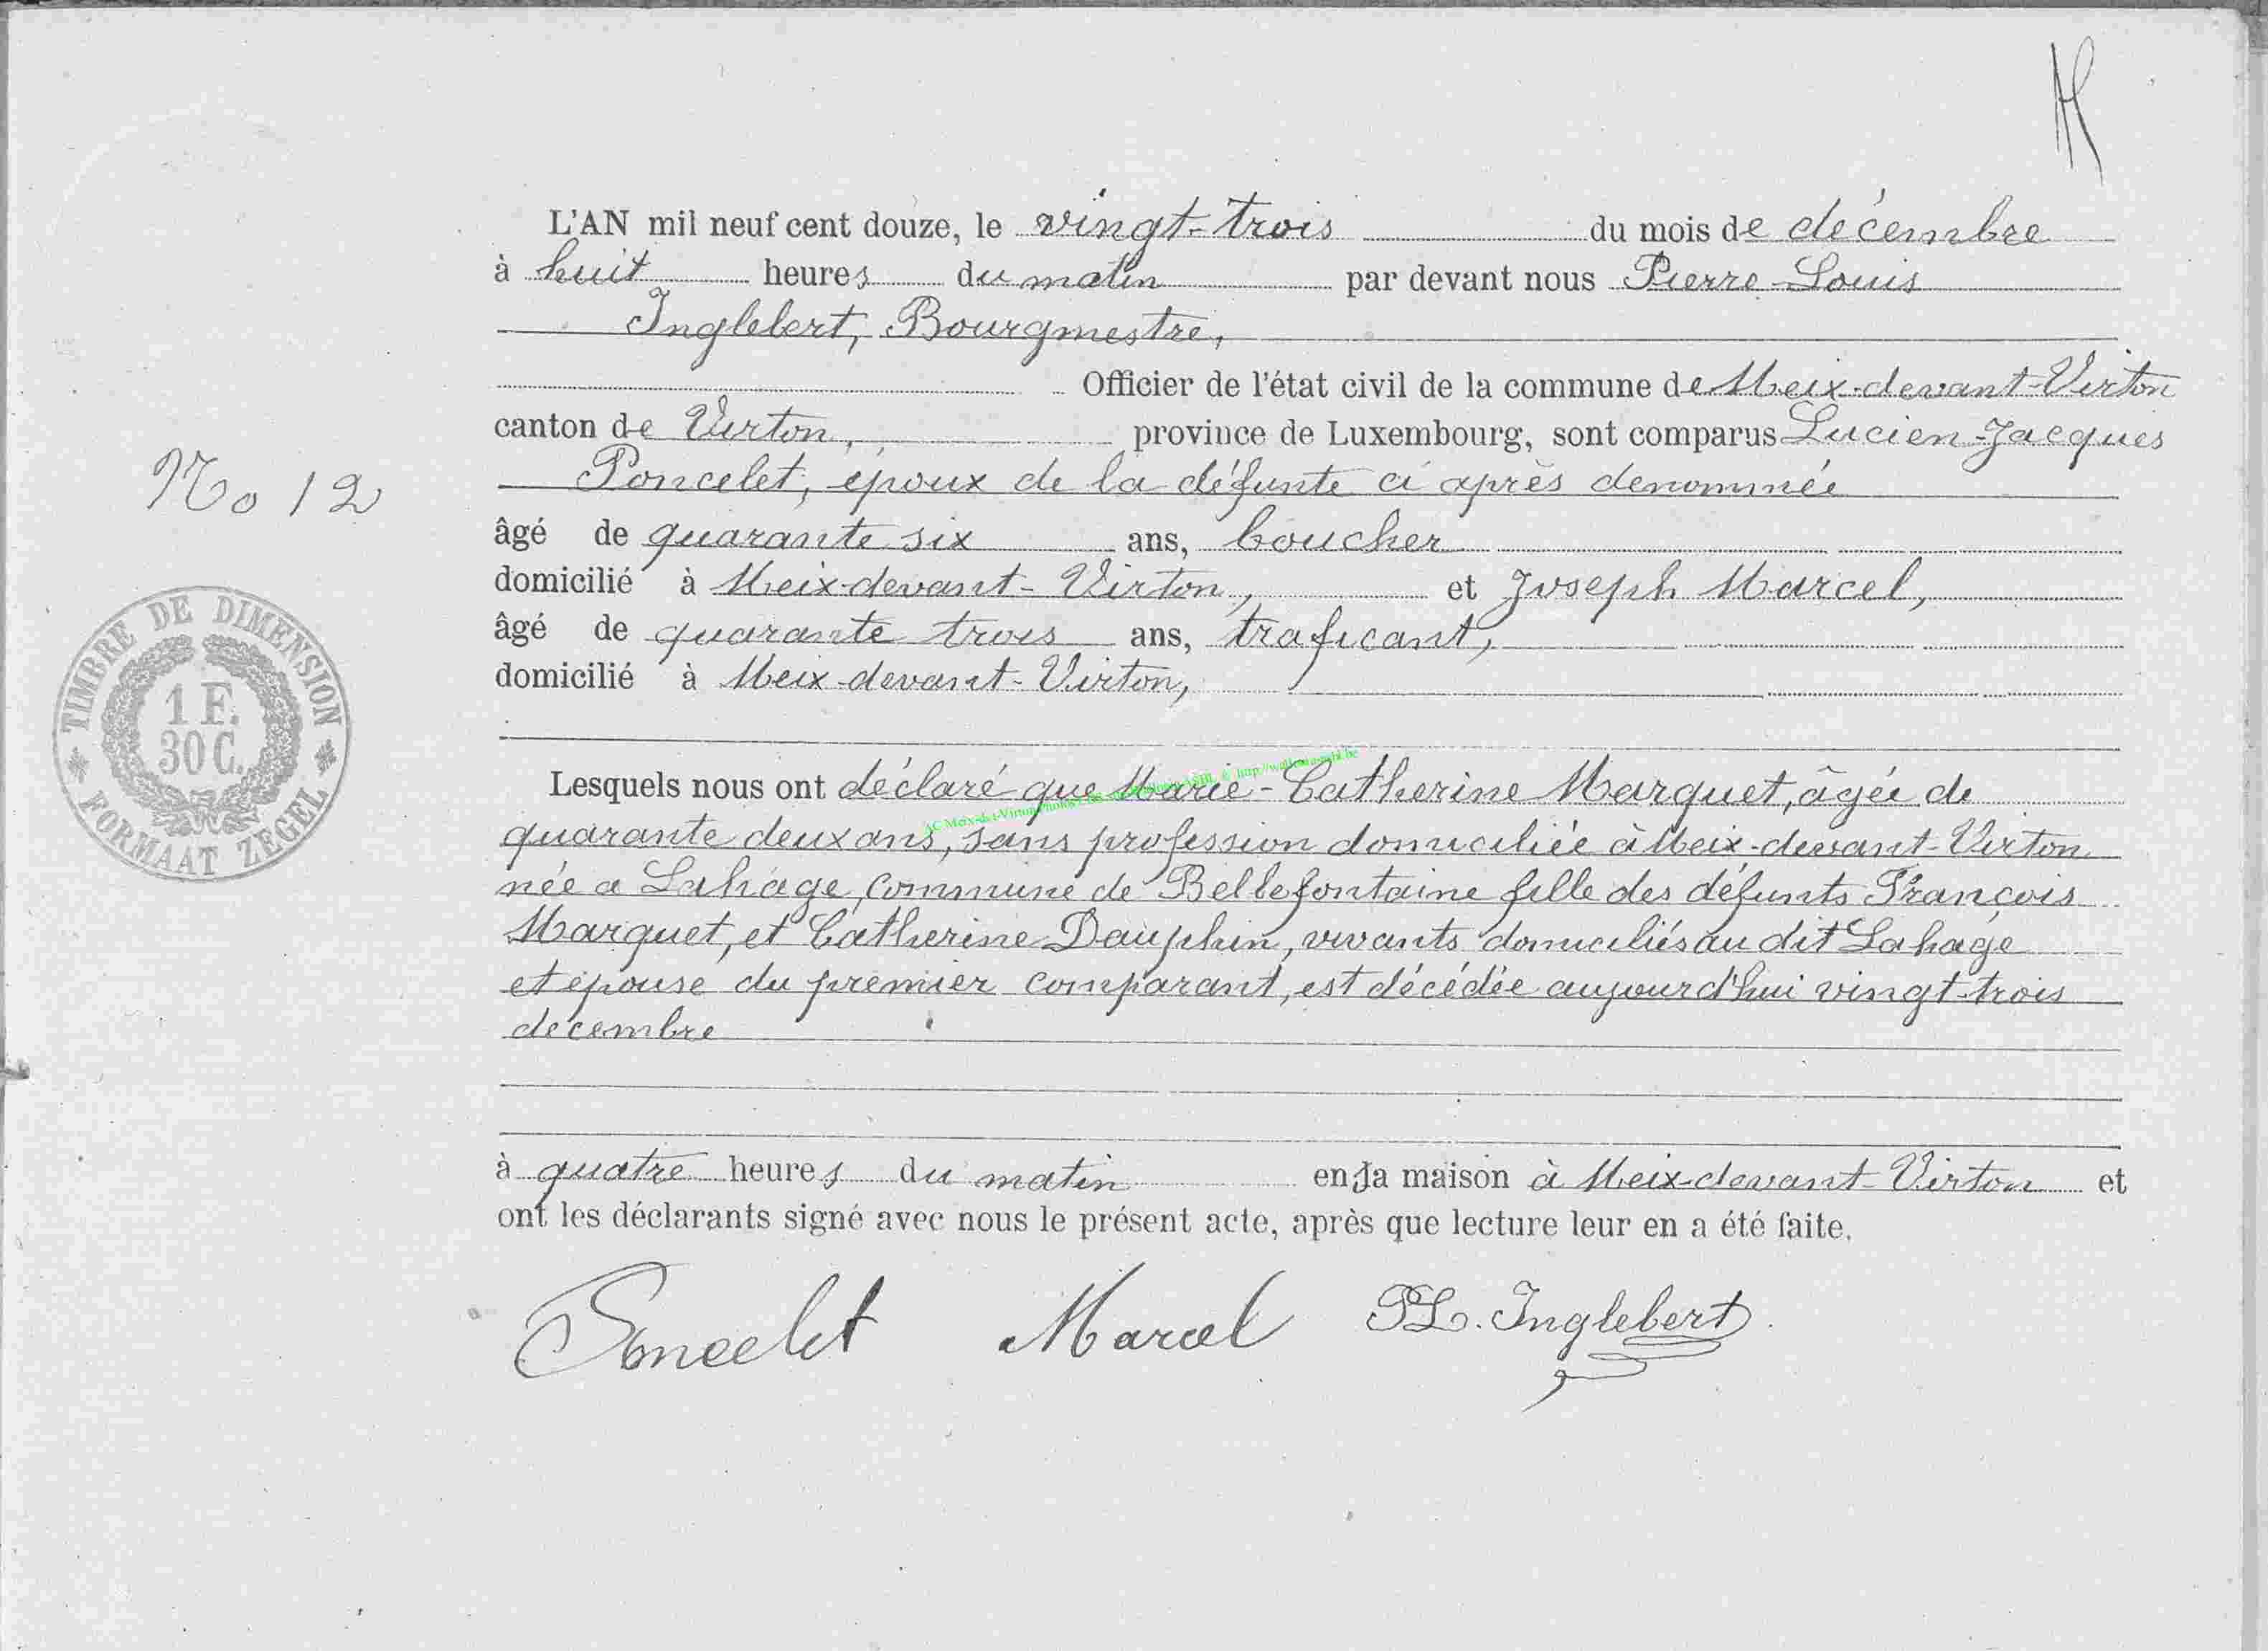 L'AN mil neuf cent douze, le vingt-trois du mois de décembre
à huit heures du matin par devant nous Pierre-Louis
Inglebert, Bourgmestre,
Officier de l'état civil de la commune de Meix-devant-Virton
canton de Virton, province de Luxembourg, sont comparus Lucien-Jacques
Poncelet, époux de la défunte ci après denommée
No 12
âgé de quarante six ans, boucher
domicilié à Meix-devant-Virton, et Joseph Marcel,
âgé de quarante trois ans, traficant,
domicilié à Meix-devant-Virton,
TIMBRE DE DIMENSION
1 F.
30 C.
FORMAAT ZEGEL
Lesquels nous ont déclaré que Marie-Catherine Marquet, âgée de
quarante deux ans, sans profession domiciliée à Meix-devant-Virton
née a Lahage, commune de Bellefontaine fille des défunts François
Marquet, et Catherine Dauphin, vivants domiciliés au dit Lahage
et épouse du premier comparant, est décédée aujourd'hui vingt-trois
decembre
à quatre heures du matin en sa maison à Meix-devant-Virton et
ont les déclarants signé avec nous le présent acte, après que lecture leur en a été faite.
Poncelet Marcel PL. Inglebert